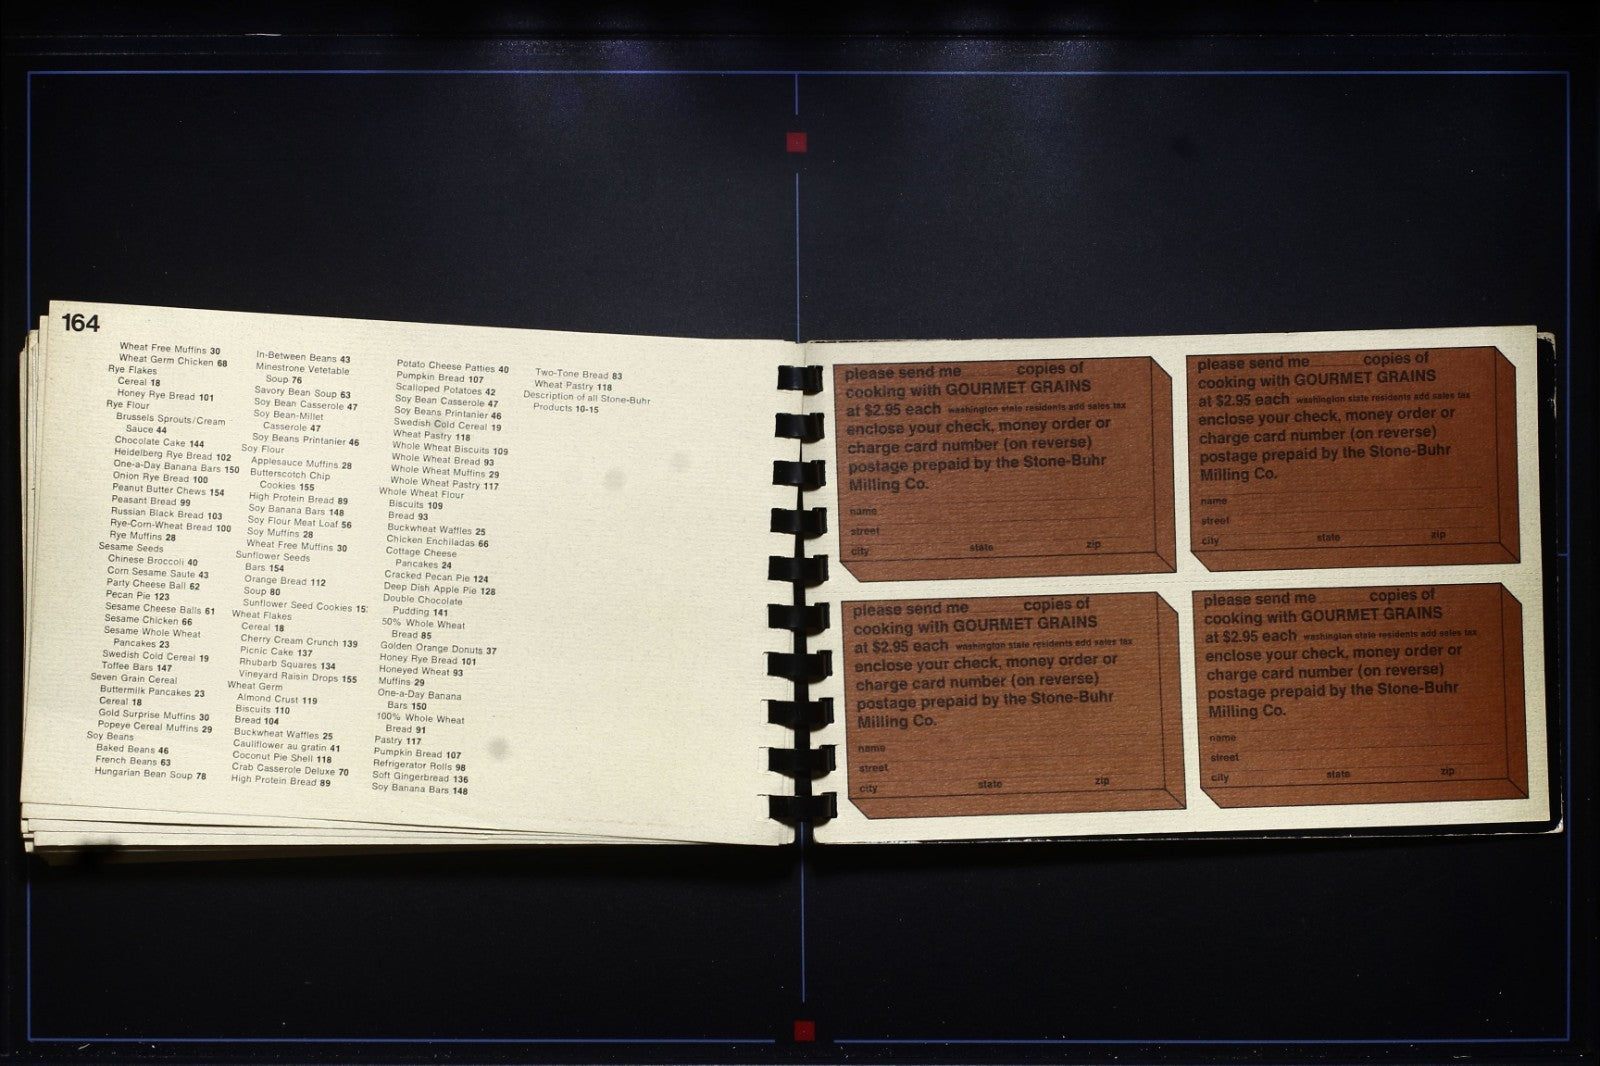 164
Wheat Free Muffins 30
Wheat Germ Chicken 68
Rye Flakes
Cereal 18
Honey Rye Bread 101
Rye Flour
Brussels Sprouts/Cream
Sauce 44
Chocolate Cake 144
Heidelberg Rye Bread 102
One-a-Day Banana Bars 150
Onion Rye Bread 100
Peanut Butter Chews 154
Peasant Bread 99
Russian Black Bread 103
Rye-Corn-Wheat Bread 100
Rye Muffins 28
Sesame Seeds
Chinese Broccoli 40
Corn Sesame Saute 43
Party Cheese Ball 62
Pecan Pie 123
Sesame Cheese Balls 61
Sesame Chicken 66
Sesame Whole Wheat
Pancakes 23
Swedish Cold Cereal 19
Toffee Bars 147
Seven Grain Cereal
Buttermilk Pancakes 23
Cereal 18
Gold Surprise Muffins 30
Popeye Cereal Muffins 29
Soy Beans
Baked Beans 46
French Beans 63
Hungarian Bean Soup 78
In-Between Beans 43
Minestrone Vetetable
Soup 76
Savory Bean Soup 63
Soy Bean Casserole 47
Soy Bean-Millet
Casserole 47
Soy Beans Printanier 46
Soy Flour
Applesauce Muffins 28
Butterscotch Chip
Cookies 155
High Protein Bread 89
Soy Banana Bars 148
Soy Flour Meat Loaf 56
Soy Muffins 28
Wheat Free Muffins 30
Sunflower Seeds
Bars 154
Orange Bread 112
Soup 80
Sunflower Seed Cookies 15
Wheat Flakes
Cereal 18
Cherry Cream Crunch 139
Picnic Cake 137
Rhubarb Squares 134
Vineyard Raisin Drops 155
Wheat Germ
Almond Crust 119
Biscuits 110
Bread 104
Buckwheat Waffles 25
Cauliflower au gratin 41
Coconut Pie Shell 118
Crab Casserole Deluxe 70
High Protein Bread 89
Potato Cheese Patties 40
Pumpkin Bread 107
Scalloped Potatoes 42
Soy Bean Casserole 47
Soy Beans Printanier 46
Swedish Cold Cereal 19
Wheat Pastry 118
Whole Wheat Biscuits 109
Whole Wheat Bread 93
Whole Wheat Muffins 29
Whole Wheat Pastry 117
Whole Wheat Flour
Biscuits 109
Bread 93
Buckwheat Waffles 25
Chicken Enchiladas 66
Cottage Cheese
Pancakes 24
Cracked Pecan Pie 124
Deep Dish Apple Pie 128
Double Chocolate
Pudding 141
50% Whole Wheat
Bread 85
Golden Orange Donuts 37
Honey Rye Bread 101
Honeyed Wheat 93
Muffins 29
One-a-Day Banana
Bars 150
100% Whole Wheat
Bread 91
Pastry 117
Pumpkin Bread 107
Refrigerator Rolls 98
Soft Gingerbread 136
Soy Banana Bars 148
Two-Tone Bread 83
Wheat Pastry 118
Description of all Stone-Buhr
Products 10-15
please send me ______ copies of
cooking with GOURMET GRAINS
at $2.95 each washington state residents add sales tax
enclose your check, money order or
charge card number (on reverse)
postage prepaid by the Stone-Buhr
Milling Co.
name
street
city state zip
please send me ______ copies of
cooking with GOURMET GRAINS
at $2.95 each washington state residents add sales tax
enclose your check, money order or
charge card number (on reverse)
postage prepaid by the Stone-Buhr
Milling Co.
name
street
city state zip
please send me ______ copies of
cooking with GOURMET GRAINS
at $2.95 each washington state residents add sales tax
enclose your check, money order or
charge card number (on reverse)
postage prepaid by the Stone-Buhr
Milling Co.
name
street
city state zip
please send me ______ copies of
cooking with GOURMET GRAINS
at $2.95 each washington state residents add sales tax
enclose your check, money order or
charge card number (on reverse)
postage prepaid by the Stone-Buhr
Milling Co.
name
street
city state zip